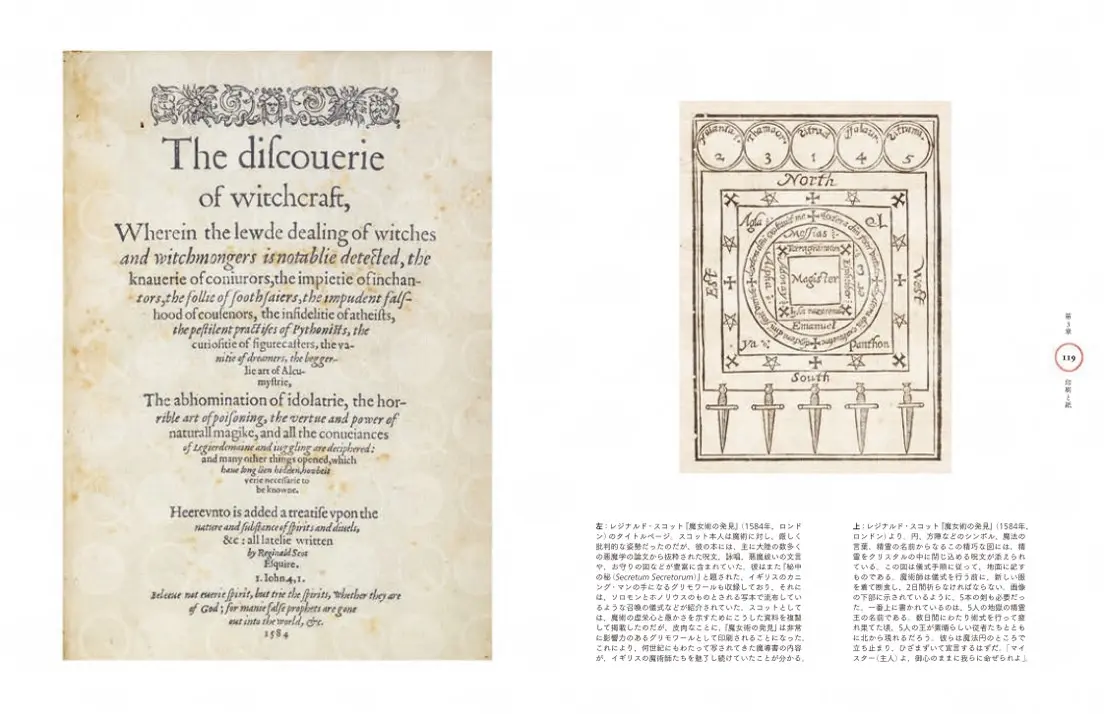 The diſcouerie
of witchcraft,
Wherein the lewde dealing of witches
and witchmongers is notablie detected, the
knauerie of coniurors, the impietie of inchan-
tors, the follie of ſoothſaiers, the impudent falſ-
hood of couſenors, the infidelitie of atheiſts,
the peſtilent practiſes of Pythoniſts, the
curioſitie of figurecaſters, the va-
nitie of dreamers, the begger-
lie art of Alcu-
myſtrie,
The abhomination of idolatrie, the hor-
rible art of poiſoning, the vertue and power of
naturall magike, and all the conueiances
of Legierdemaine and iuggling are deciphered:
and many other things opened, which
haue long lien hidden, howbeit
verie neceſſarie to
be knowne.
Heerevnto is added a treatiſe vpon the
nature and ſubſtance of ſpirits and diuels,
&c: all latelie written
by Reginald Scot
Eſquire.
1. Iohn. 4, 1.
Beleeue not euerie ſpirit, but trie the ſpirits, whether they are
of God; for manie falſe prophets are gone
out into the world, &c.
1584
2
3
1
4
5
North
Agla
El
Messias
Eſt
Alpha
Magister
Weſt
Emanuel
Ya
Panthon
South
第3章
119
印刷と紙
左：レジナルド・スコット『魔女術の発見』（1584年、ロンド
ン）のタイトルページ。スコット本人は魔術に対し、厳しく
批判的な姿勢だったのだが、彼の本には、主に大陸の数多く
の悪魔学の論文から抜粋された呪文、詠唱、悪魔祓いの文言
や、お守りの図などが豊富に含まれていた。彼はまた『秘中
の秘（Secretum Secretorum）』と題された、イギリスのカニ
ング・マンの手になるグリモワールも収録しており、それに
は、ソロモンとホノリウスのものとされる写本で流布してい
るような召喚の儀式などが紹介されていた。スコットとして
は、魔術の虚栄心と愚かさを示すためにこうした資料を複製
して掲載したのだが、皮肉なことに、『魔女術の発見』は非常
に影響力のあるグリモワールとして印刷されることになった。
これにより、何世紀にもわたって写されてきた魔導書の内容
が、イギリスの魔術師たちを魅了し続けていたことが分かる。
上：レジナルド・スコット『魔女術の発見』（1584年、
ロンドン）より。円、方陣などのシンボル、魔法の
言葉、精霊の名前からなるこの精巧な図には、精
霊をクリスタルの中に閉じ込める呪文が添えられ
ている。この図は儀式手順に従って、地面に記す
ものである。魔術師は儀式を行う前に、新しい服
を着て断食し、2日間祈らなければならない。画像
の下部に示されているように、5本の剣も必要だっ
た。一番上に書かれているのは、5人の地獄の精霊
王の名前である。数日間にわたり術式を行って疲
れ果てた頃、5人の王が素晴らしい従者たちととも
に北から現れるだろう。彼らは魔法円のところで
立ち止まり、ひざまずいて宣言するはずだ。「マイ
スター（主人）よ、御心のままに我らに命ぜられよ」